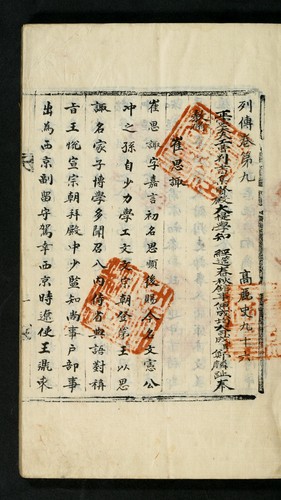 列傳卷第九　高麗史九十六
正憲大夫工曹判書集賢殿大提學知 經筵春秋館事兼成均大司成臣鄭麟趾奉
敎修
崔思諏
崔思諏字嘉言初名思順後賜今名文憲公
冲之孫自少力學工文宗朝登第王以思
諏名家子博學多聞召入內侍省與語對稱
旨王悅宣宗朝拜殿中少監知尙書戶部事
出爲西京副留守駕幸西京時遼使王鼎來